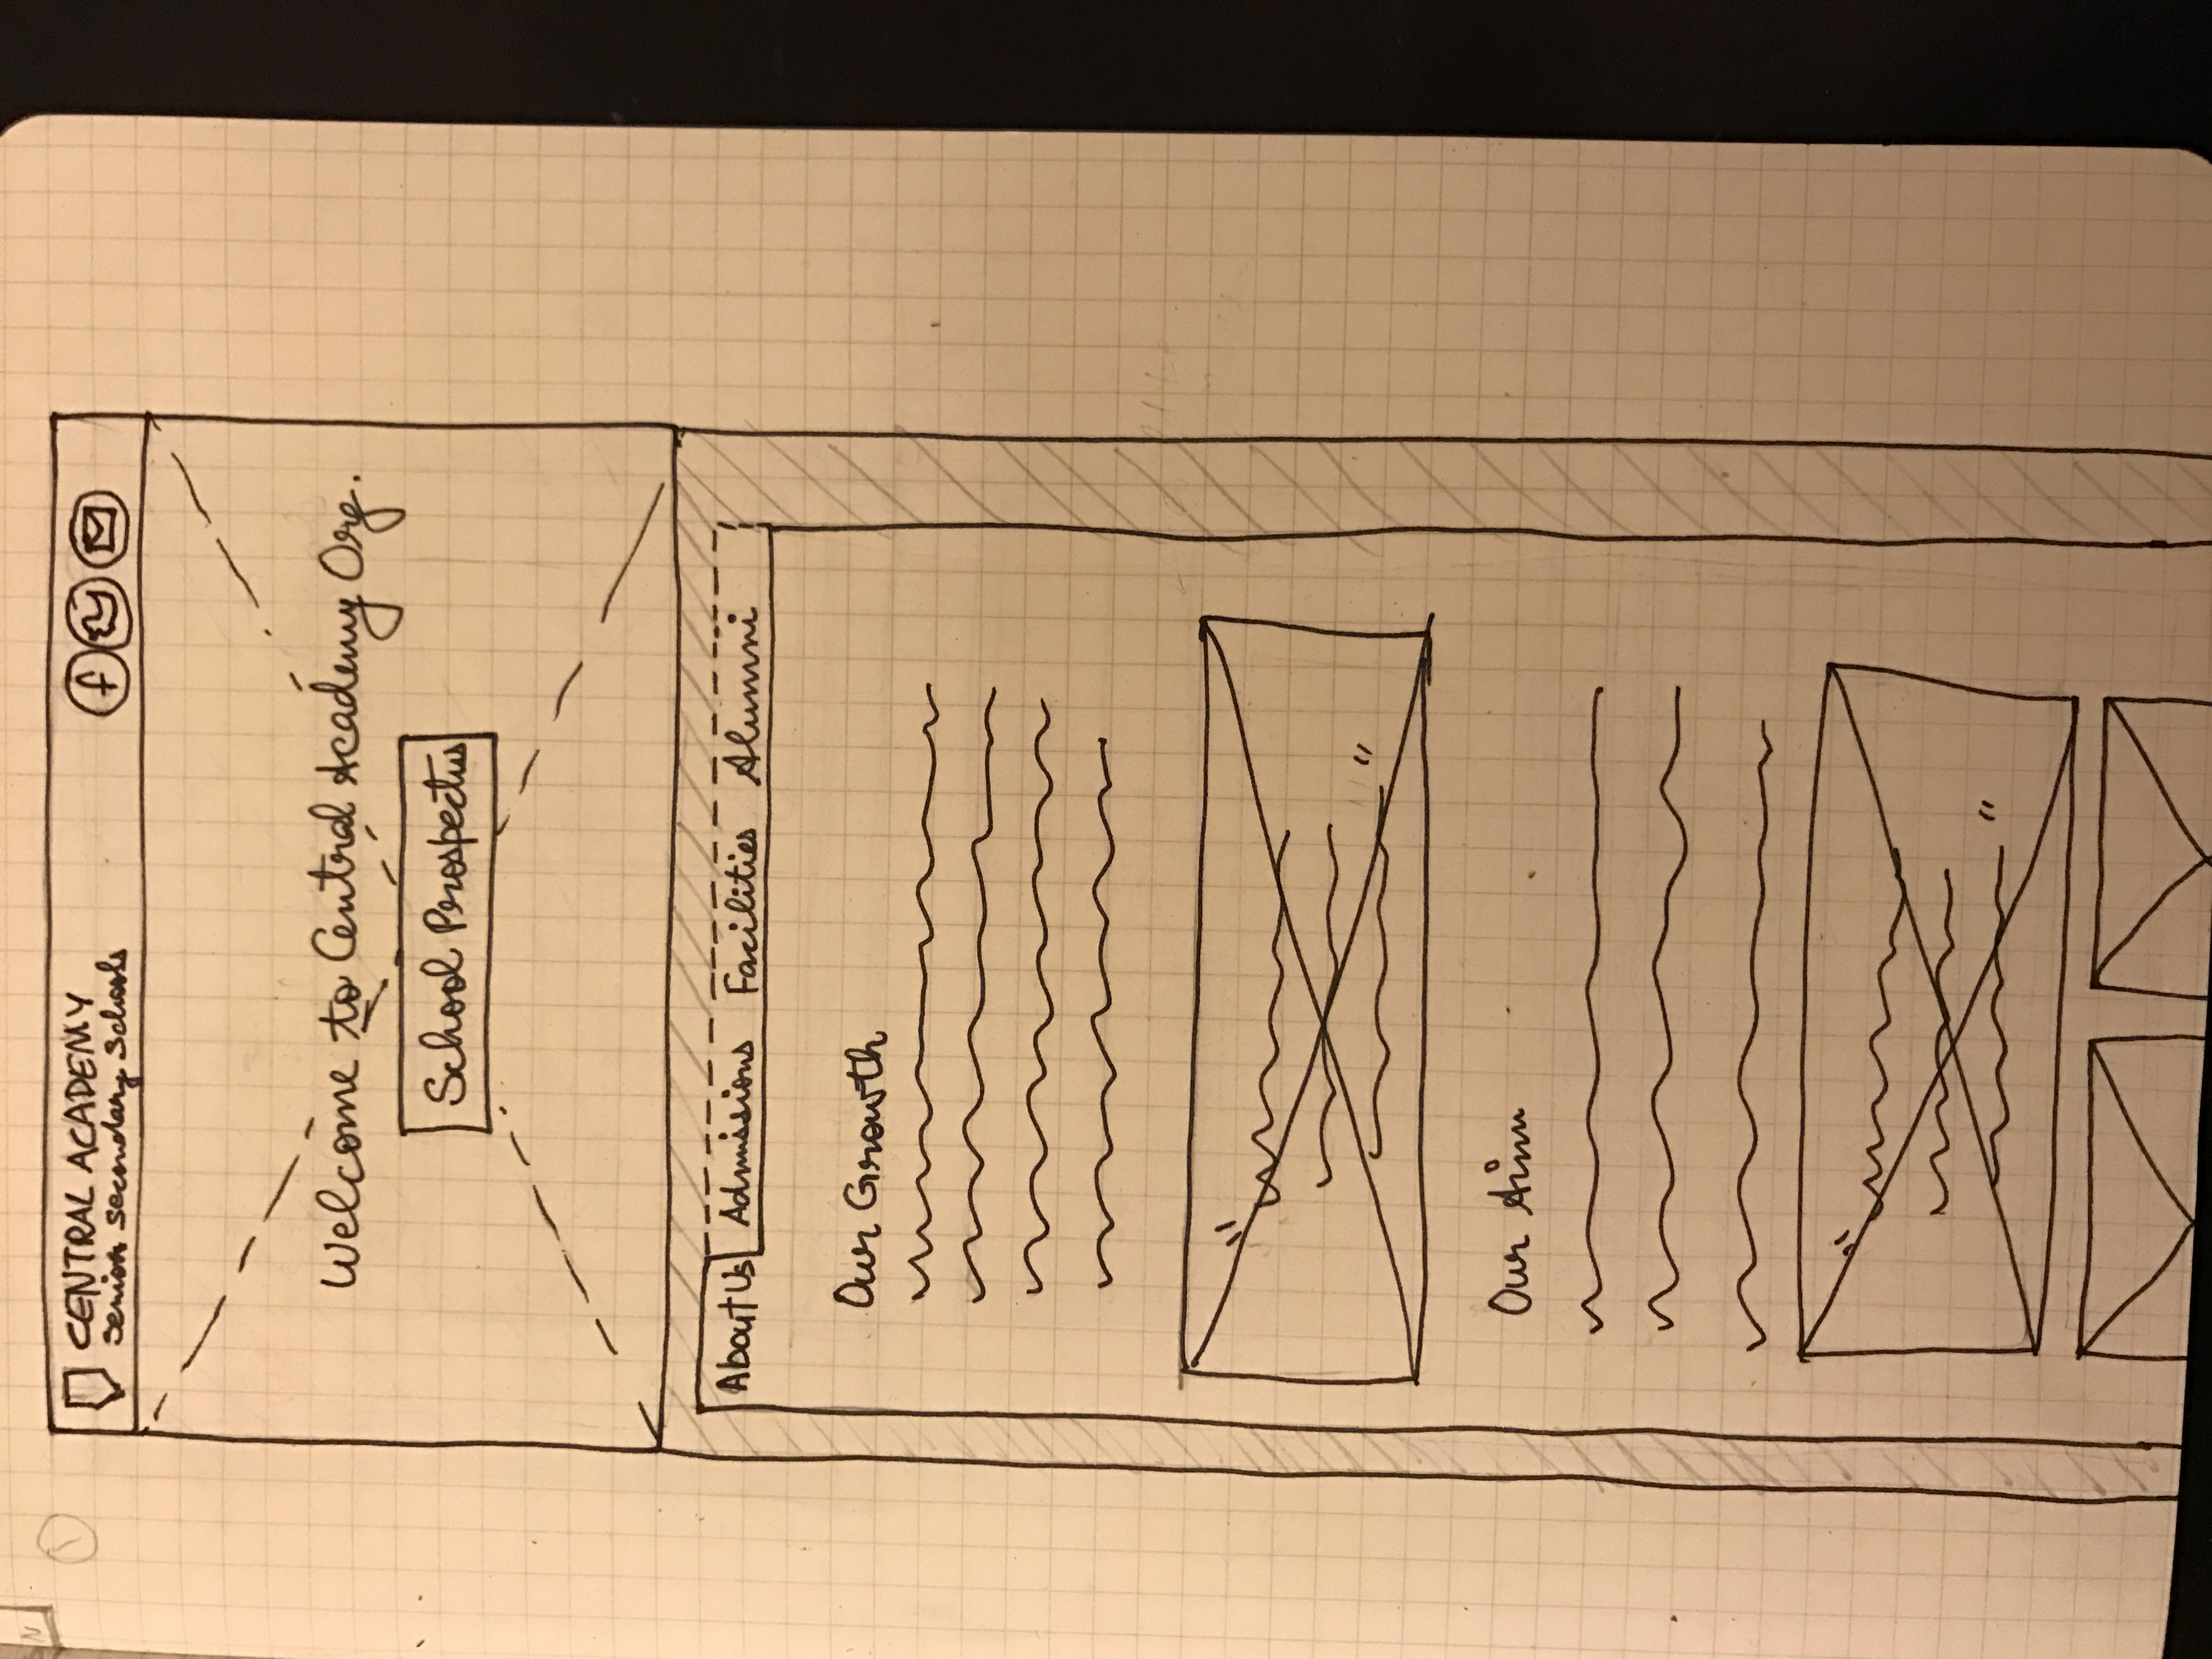 CENTRAL ACADEMY
Senior Secondary Schools
f
Welcome to Central Academy Org.
School Prospectus
About Us Admissions Facilities Alumni
Our Growth
Our Aim